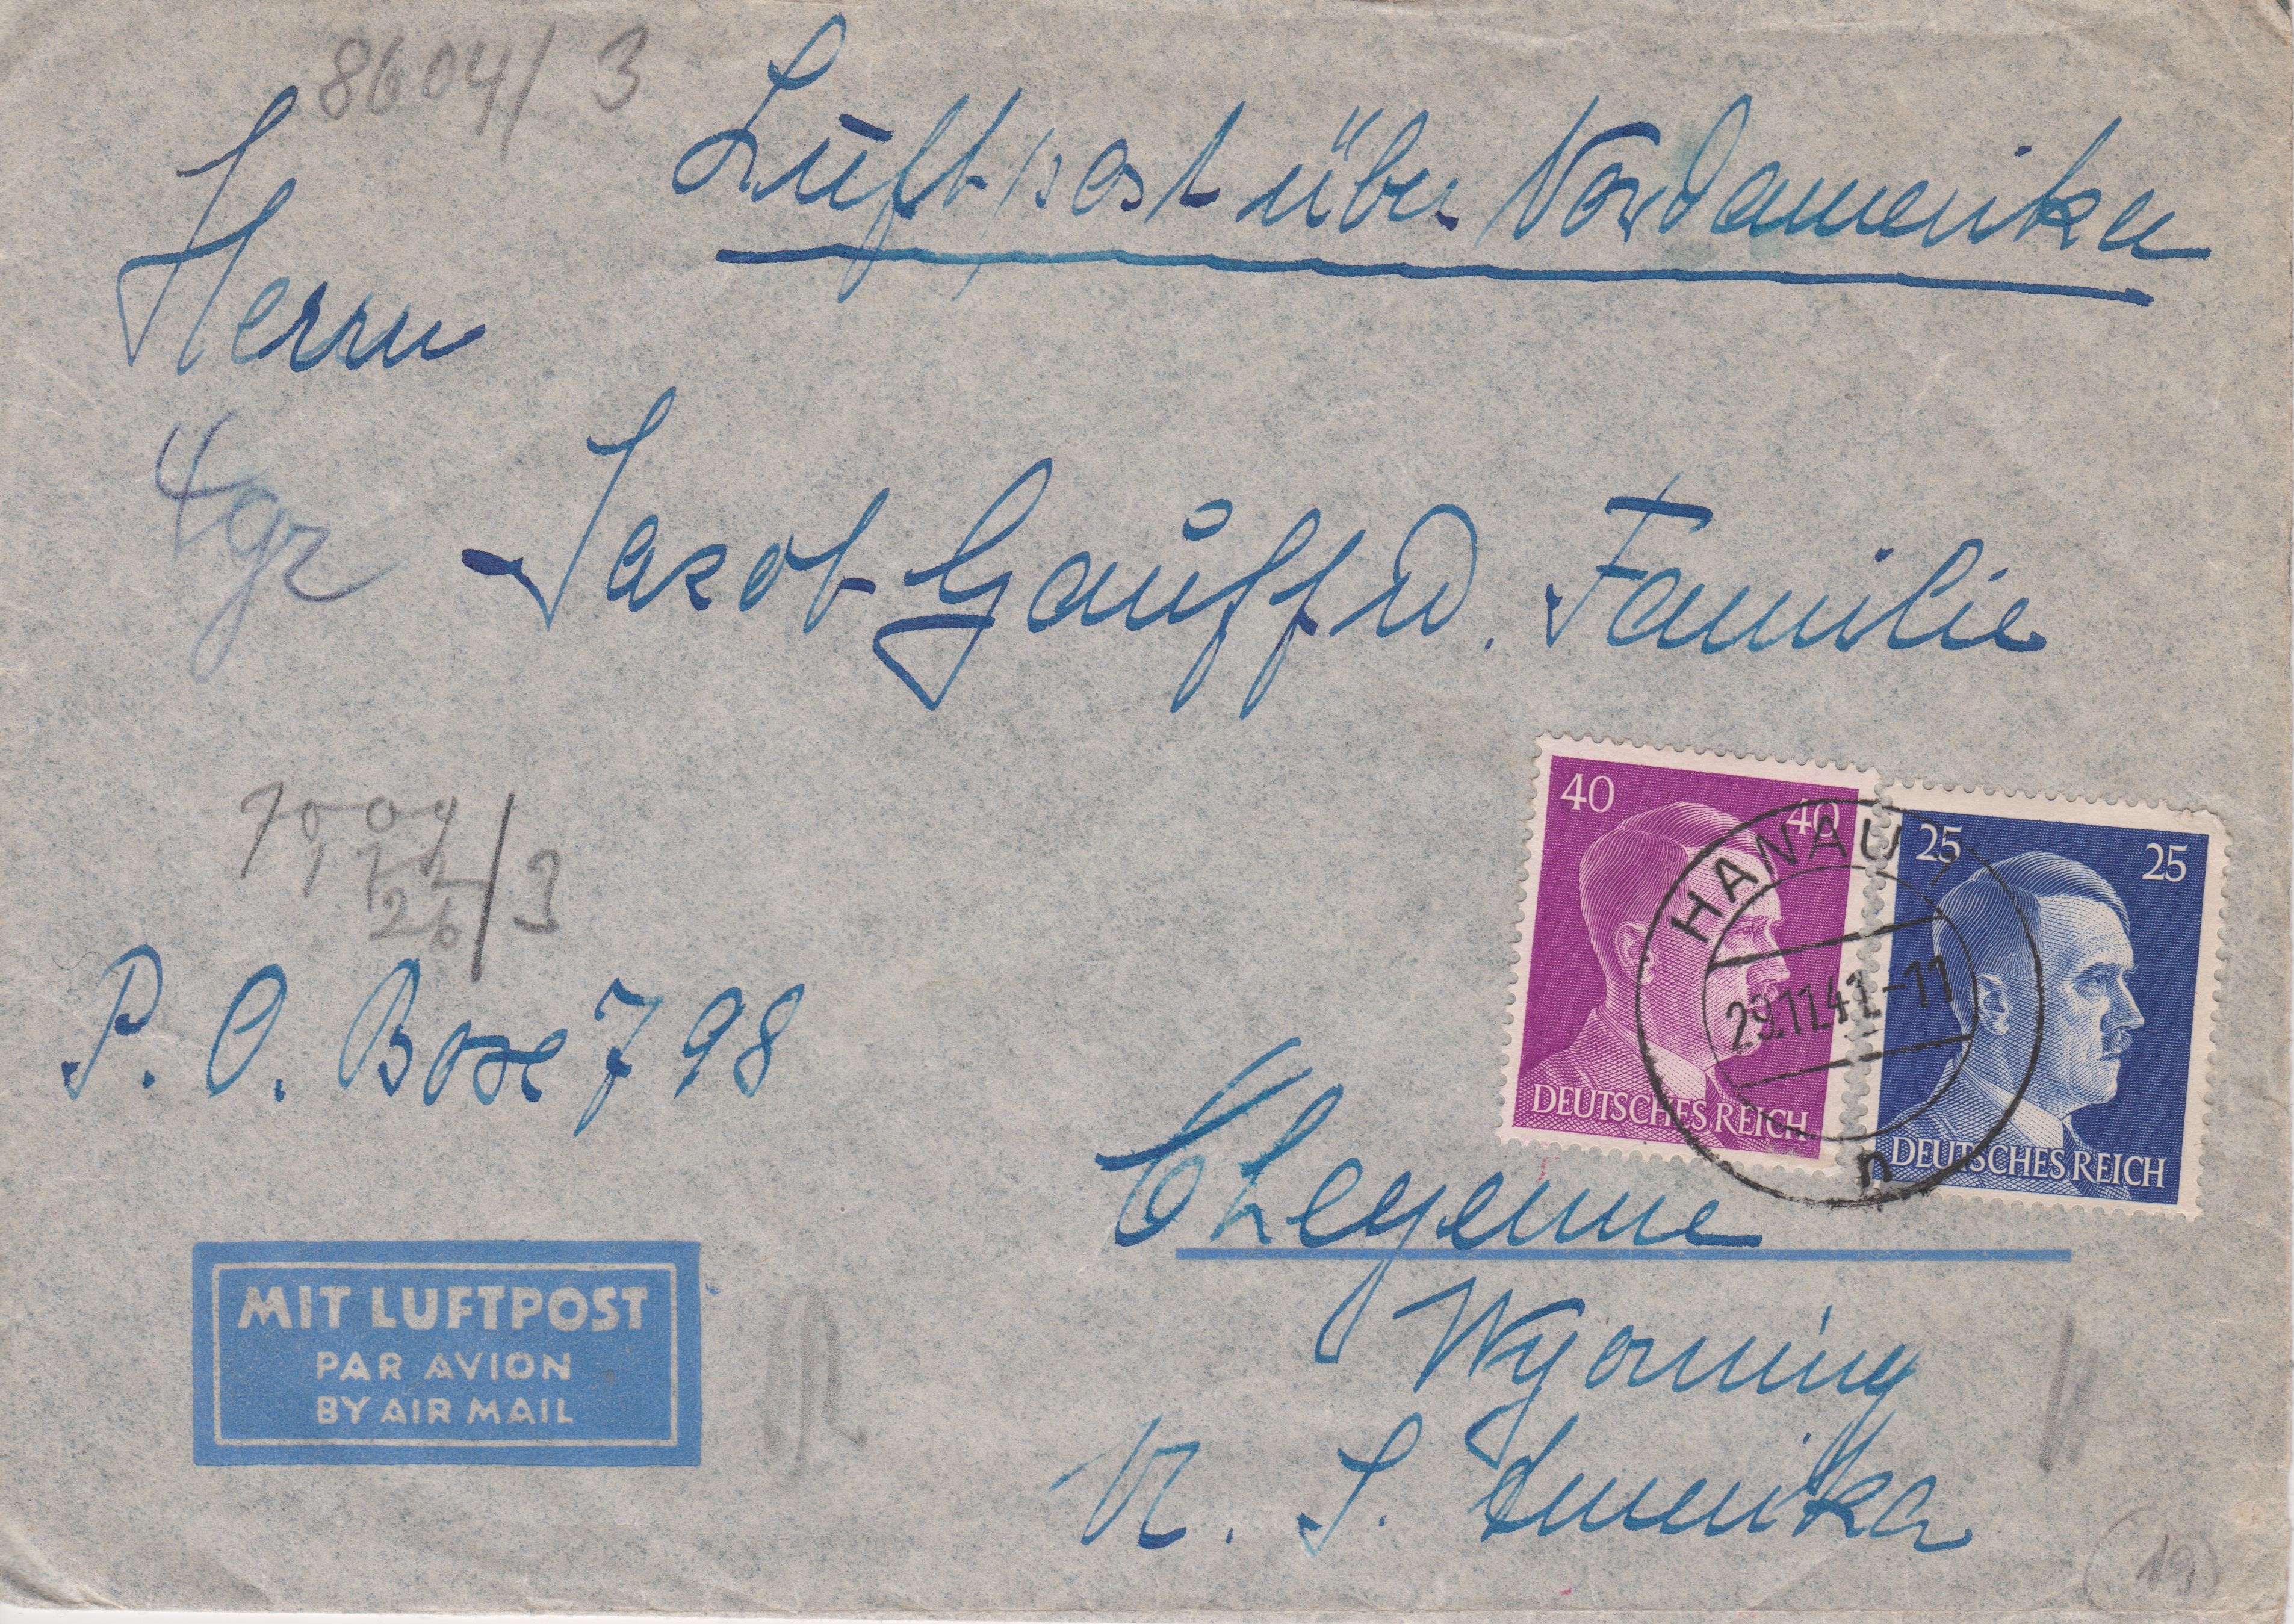 8604/3
Luftpost über Nordamerika
Herrn
4gr
Jacob Gauff u. Familie
40 40
25 25
HANAU 1
29.11.41.-11
n
DEUTSCHES REICH
DEUTSCHES REICH
26/3
P. O. Box 798
Cheyenne
Wyoming
U. S. Amerika
MIT LUFTPOST
PAR AVION
BY AIR MAIL
19